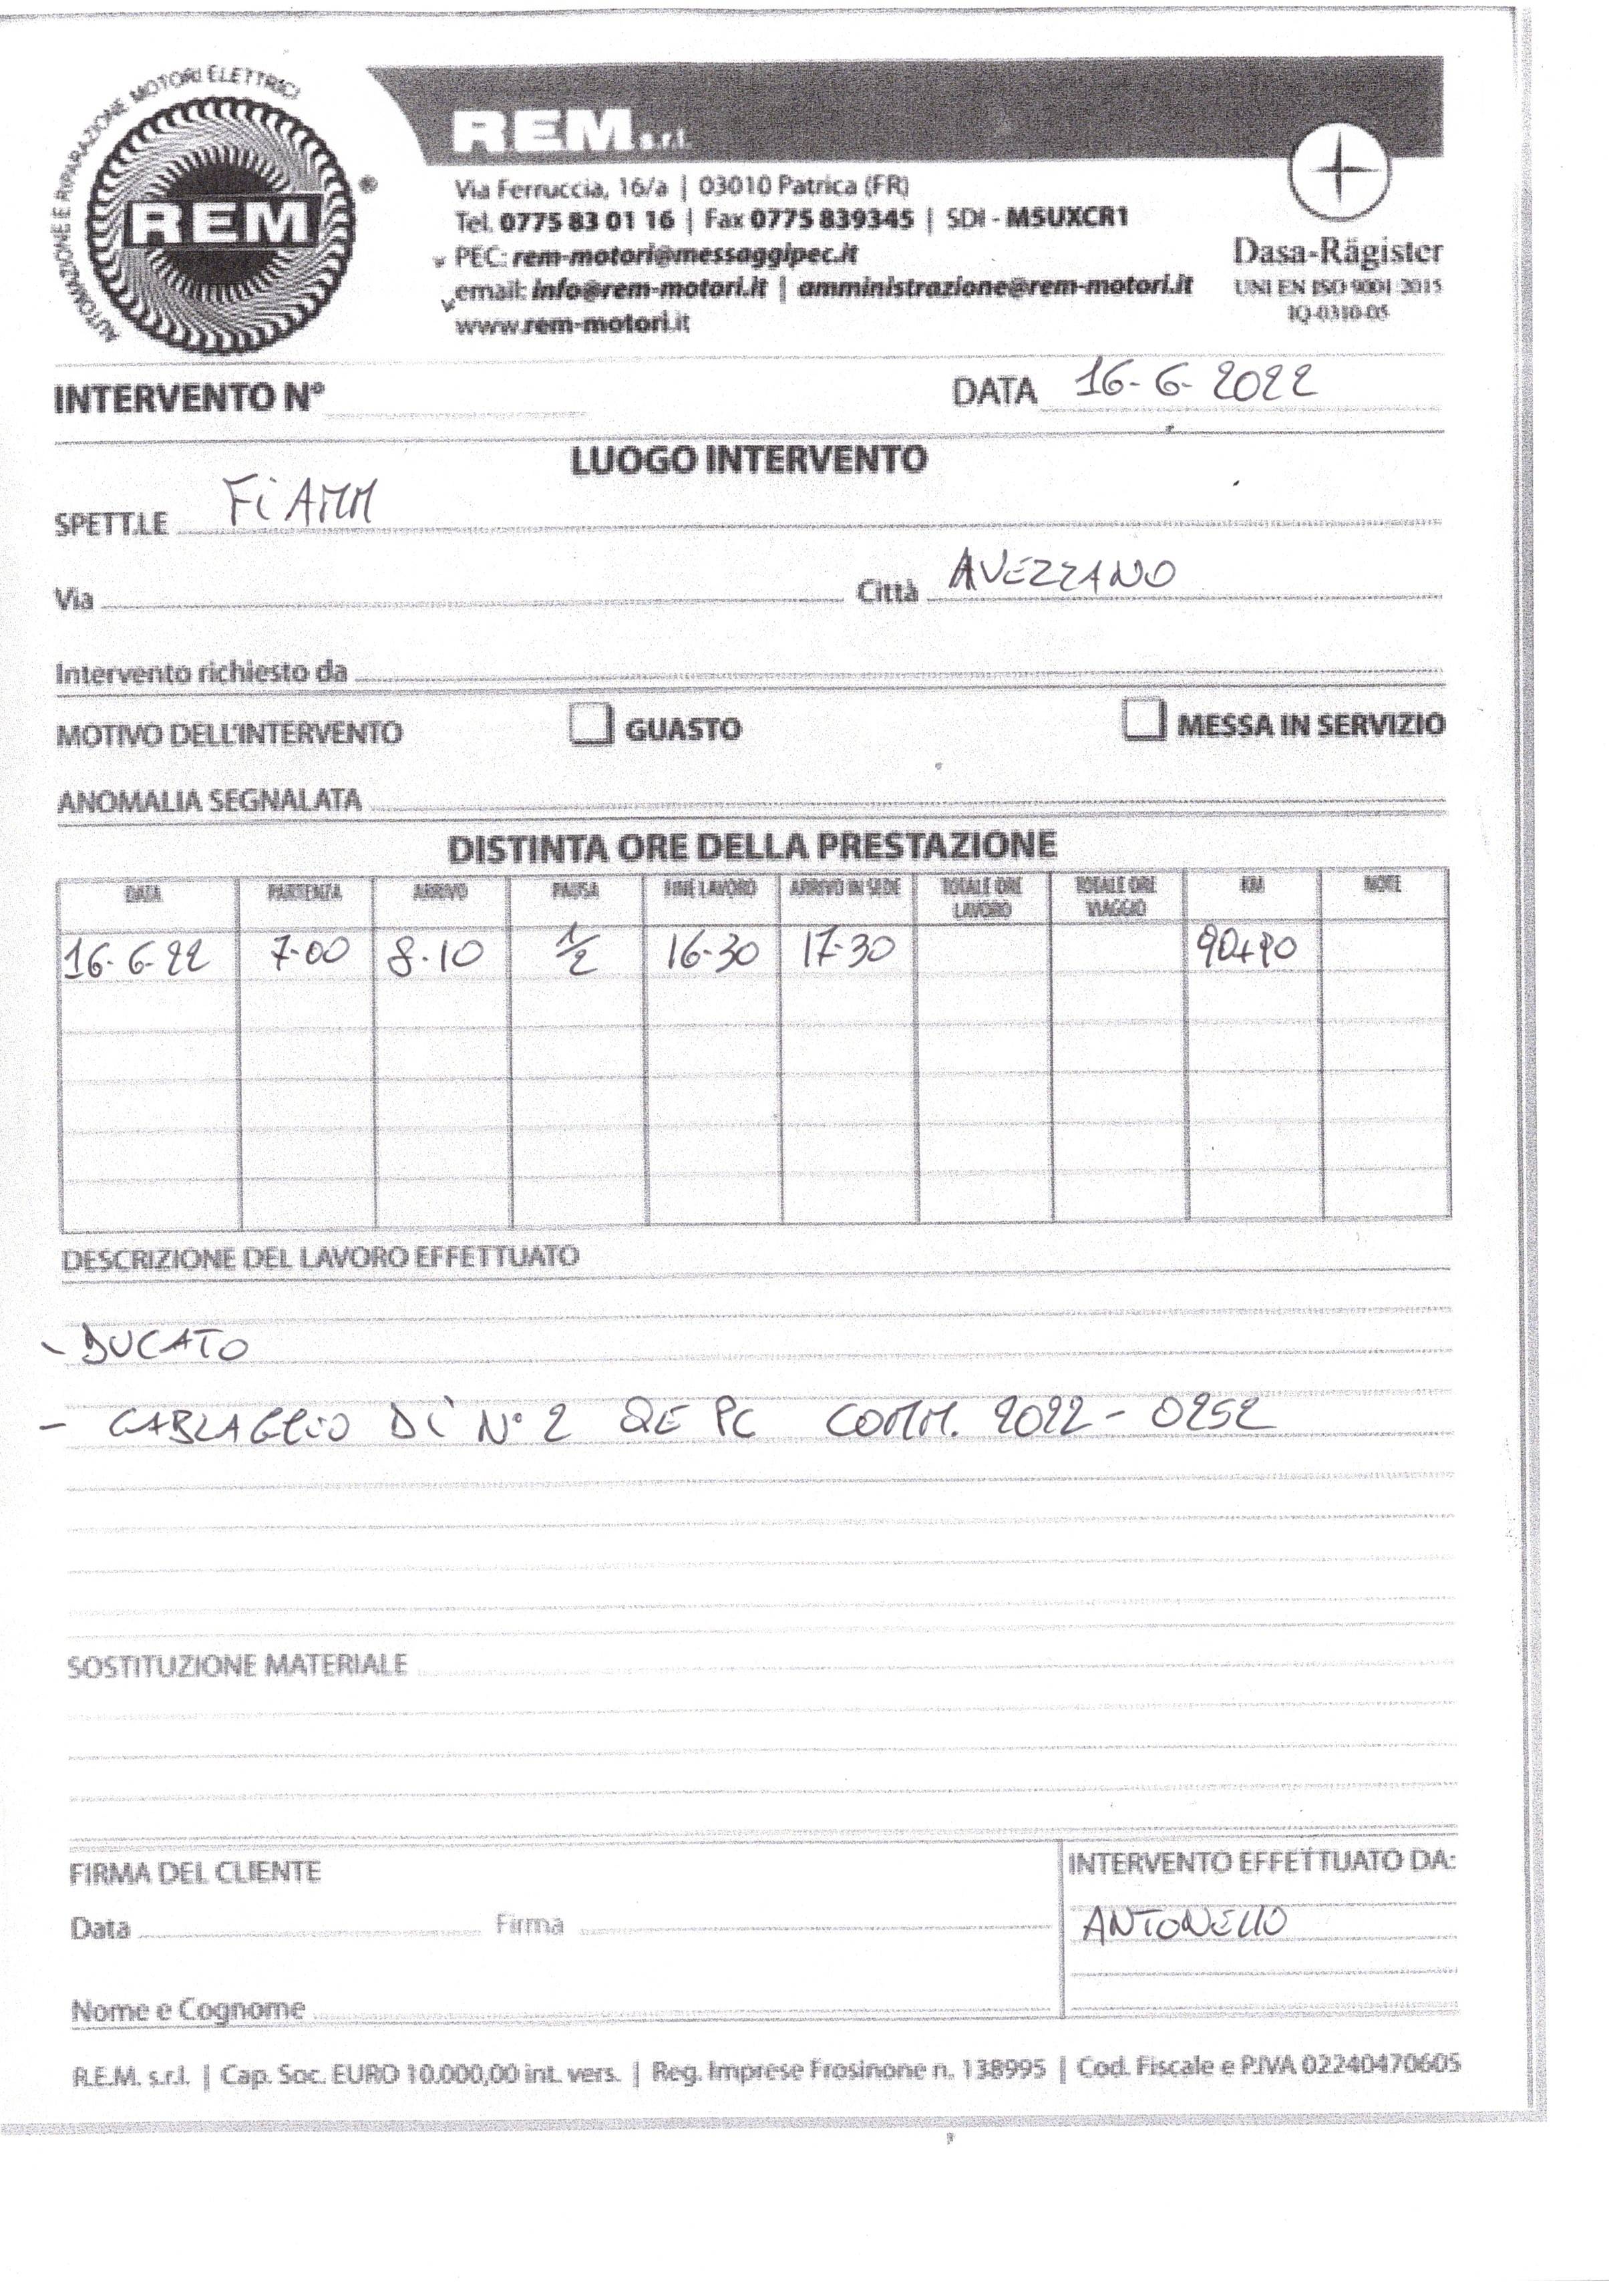 AUTOMAZIONE E RIPARAZIONE MOTORI ELETTRICI
REM ®
REM s.r.l.
Via Ferruccia, 16/a | 03010 Patrica (FR)
Tel. 0775 83 01 16 | Fax 0775 839345 | SDI - M5UXCR1
PEC: rem-motori@messaggipec.it
email: info@rem-motori.it | amministrazione@rem-motori.it
www.rem-motori.it
Dasa-Rägister
UNI EN ISO 9001:2015
IQ-0310-05
INTERVENTO N° DATA 16-6-2022
LUOGO INTERVENTO
SPETT.LE FiAMM
Via Città AVEZZANO
Intervento richiesto da
MOTIVO DELL'INTERVENTO GUASTO MESSA IN SERVIZIO
ANOMALIA SEGNALATA
DISTINTA ORE DELLA PRESTAZIONE
DATA PARTENZA ARRIVO PAUSA FINE LAVORO ARRIVO IN SEDE TOTALE ORE LAVORO TOTALE ORE VIAGGIO KM NOTE
16-6-22 7-00 8-10 1/2 16-30 17-30 90+90
DESCRIZIONE DEL LAVORO EFFETTUATO
- DUCATO
- CABLAGGIO DI N°2 QE PC COMM. 2022-0252
SOSTITUZIONE MATERIALE
FIRMA DEL CLIENTE
Data Firma
Nome e Cognome
INTERVENTO EFFETTUATO DA:
ANTONELLO
R.E.M. s.r.l. | Cap. Soc. EURO 10.000,00 int. vers. | Reg. Imprese Frosinone n. 138995 | Cod. Fiscale e P.IVA 02240470605